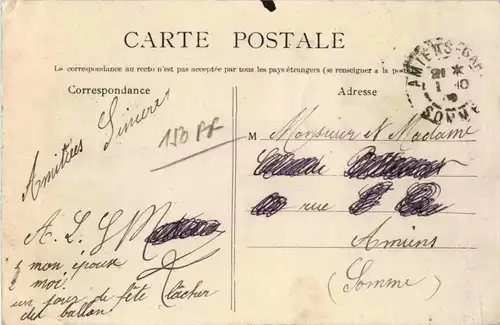 CARTE POSTALE
La correspondance au recto n'est pas acceptée par tous les pays étrangers (se renseigner à la poste
Correspondance
Adresse
AMIENS-GARE
21 *
1 10
SOMME
Amitiés Sincères
150 FF
M Monsieur et Madame
rue
Amiens
(Somme)
A. L. G M
& mon épouse
moi
un jour de fête lâcher
des ballon